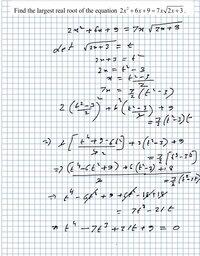 Find the largest real root of the equation 2x² + 6x + 9 = 7x√(2x + 3).
2x² + 6x + 9 = 7x √(2x + 3)
let √(2x+3) = t
2x + 3 = t²
2x = t² - 3
x = (t² - 3)/2
7x = 7/2 (t² - 3)
2 ((t² - 3)/2)² + 6 ((t² - 3)/2) + 9
= 7/2 (t² - 3) t
⇒ 2 [(t⁴ + 9 - 6t²)/4] + 3(t² - 3) + 9
= 7/2 [t³ - 3t]
⇒ ((t⁴ - 6t² + 9) + 6(t² - 3) + 18)/2
= 7/2 (t³ - 3t)
⇒ t⁴ - 6t² + 9 + 6t² - 18 + 18
= 7t³ - 21t
⇒ t⁴ - 7t³ + 21t + 9 = 0